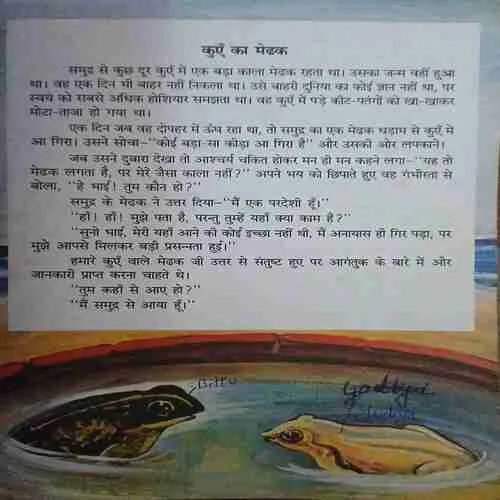 कुएँ का मेढक
समुद्र से कुछ दूर कुएँ में एक बड़ा काला मेढक रहता था। उसका जन्म वहीं हुआ
था। वह एक दिन भी बाहर नहीं निकला था। उसे बाहरी दुनिया का कोई ज्ञान नहीं था, पर
स्वयं को सबसे अधिक होशियार समझता था। वह कुएँ में पड़े कीट-पतंगों को खा-खाकर
मोटा-ताजा हो गया था।
एक दिन जब वह दोपहर में ऊँघ रहा था, तो समुद्र का एक मेढक धड़ाम से कुएँ में
आ गिरा। उसने सोचा—“कोई बड़ा-सा कीड़ा आ गिरा है” और उसकी ओर लपकाने।
जब उसने दुबारा देखा तो आश्चर्य चकित होकर मन ही मन कहने लगा—“यह तो
मेढक लगता है, पर मेरे जैसा काला नहीं?” अपने भय को छिपाते हुए वह गंभीरता से
बोला, “हे भाई! तुम कौन हो?”
समुद्र के मेढक ने उत्तर दिया—“मैं एक परदेशी हूँ।”
“हाँ! हाँ! मुझे पता है, परन्तु तुम्हें यहाँ क्या काम है?”
“सुनो भाई, मेरी यहाँ आने की कोई इच्छा नहीं थी, मैं अनायास ही गिर पड़ा, पर
मुझे आपसे मिलकर बड़ी प्रसन्नता हुई।”
हमारे कुएँ वाले मेढक जी उत्तर से संतुष्ट हुए पर आगंतुक के बारे में और
जानकारी प्राप्त करना चाहते थे।
“तुम कहाँ से आए हो?”
“मैं समुद्र से आया हूँ।”